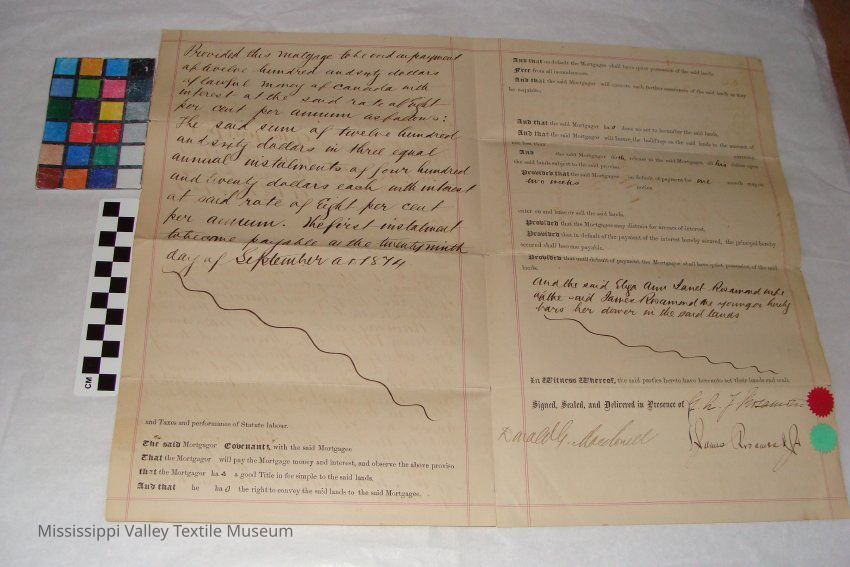 Provided this mortgage to be void on payment
of twelve hundred and sixty dollars
of lawful money of Canada with
interest at the said rate of Eight
per cent per annum as follows:
The said sum of twelve hundred
and sixty dollars in three equal
annual instalments of four hundred
and twenty dollars each with interest
at said rate of Eight per cent
per annum. The first instalment
to become payable on the twenty ninth
day of September A.D. 1874
and Taxes and performance of Statute labour.
The said Mortgagor Covenants with the said Mortgagee
That the Mortgagor will pay the Mortgage money and interest, and observe the above proviso
that the Mortgagor has a good Title in fee simple to the said lands.
And that he has the right to convey the said lands to the said Mortgagee.
And that on default the Mortgagee shall have quiet possession of the said lands.
Free from all incumbrances.
And that the said Mortgagor will execute such further assurances of the said lands as may
be requisite.
And that the said Mortgagor has done no act to incumber the said lands.
And that the said Mortgagor will insure the buildings on the said lands to the amount of
not less than currency.
And the said Mortgagor doth release to the said Mortgagee all his claims upon
the said lands subject to the said proviso.
Provided that the said Mortgagee on default of payment for one month may on
two weeks notice
enter on and lease or sell the said lands.
Provided that the Mortgagee may distrain for arrears of interest.
Provided that in default of the payment of the interest hereby secured, the principal hereby
secured shall become payable.
Provided that until default of payment the Mortgagor shall have quiet possession of the said
lands.
And the said Eliza Ann Janet Rosamond wife
of the said James Rosamond the younger hereby
bars her dower in the said lands
In Witness Whereof, the said parties hereto have hereunto set their hands and seals.
Signed, Sealed, and Delivered in Presence of
James Rosamond Jr
CM
Mississippi Valley Textile Museum